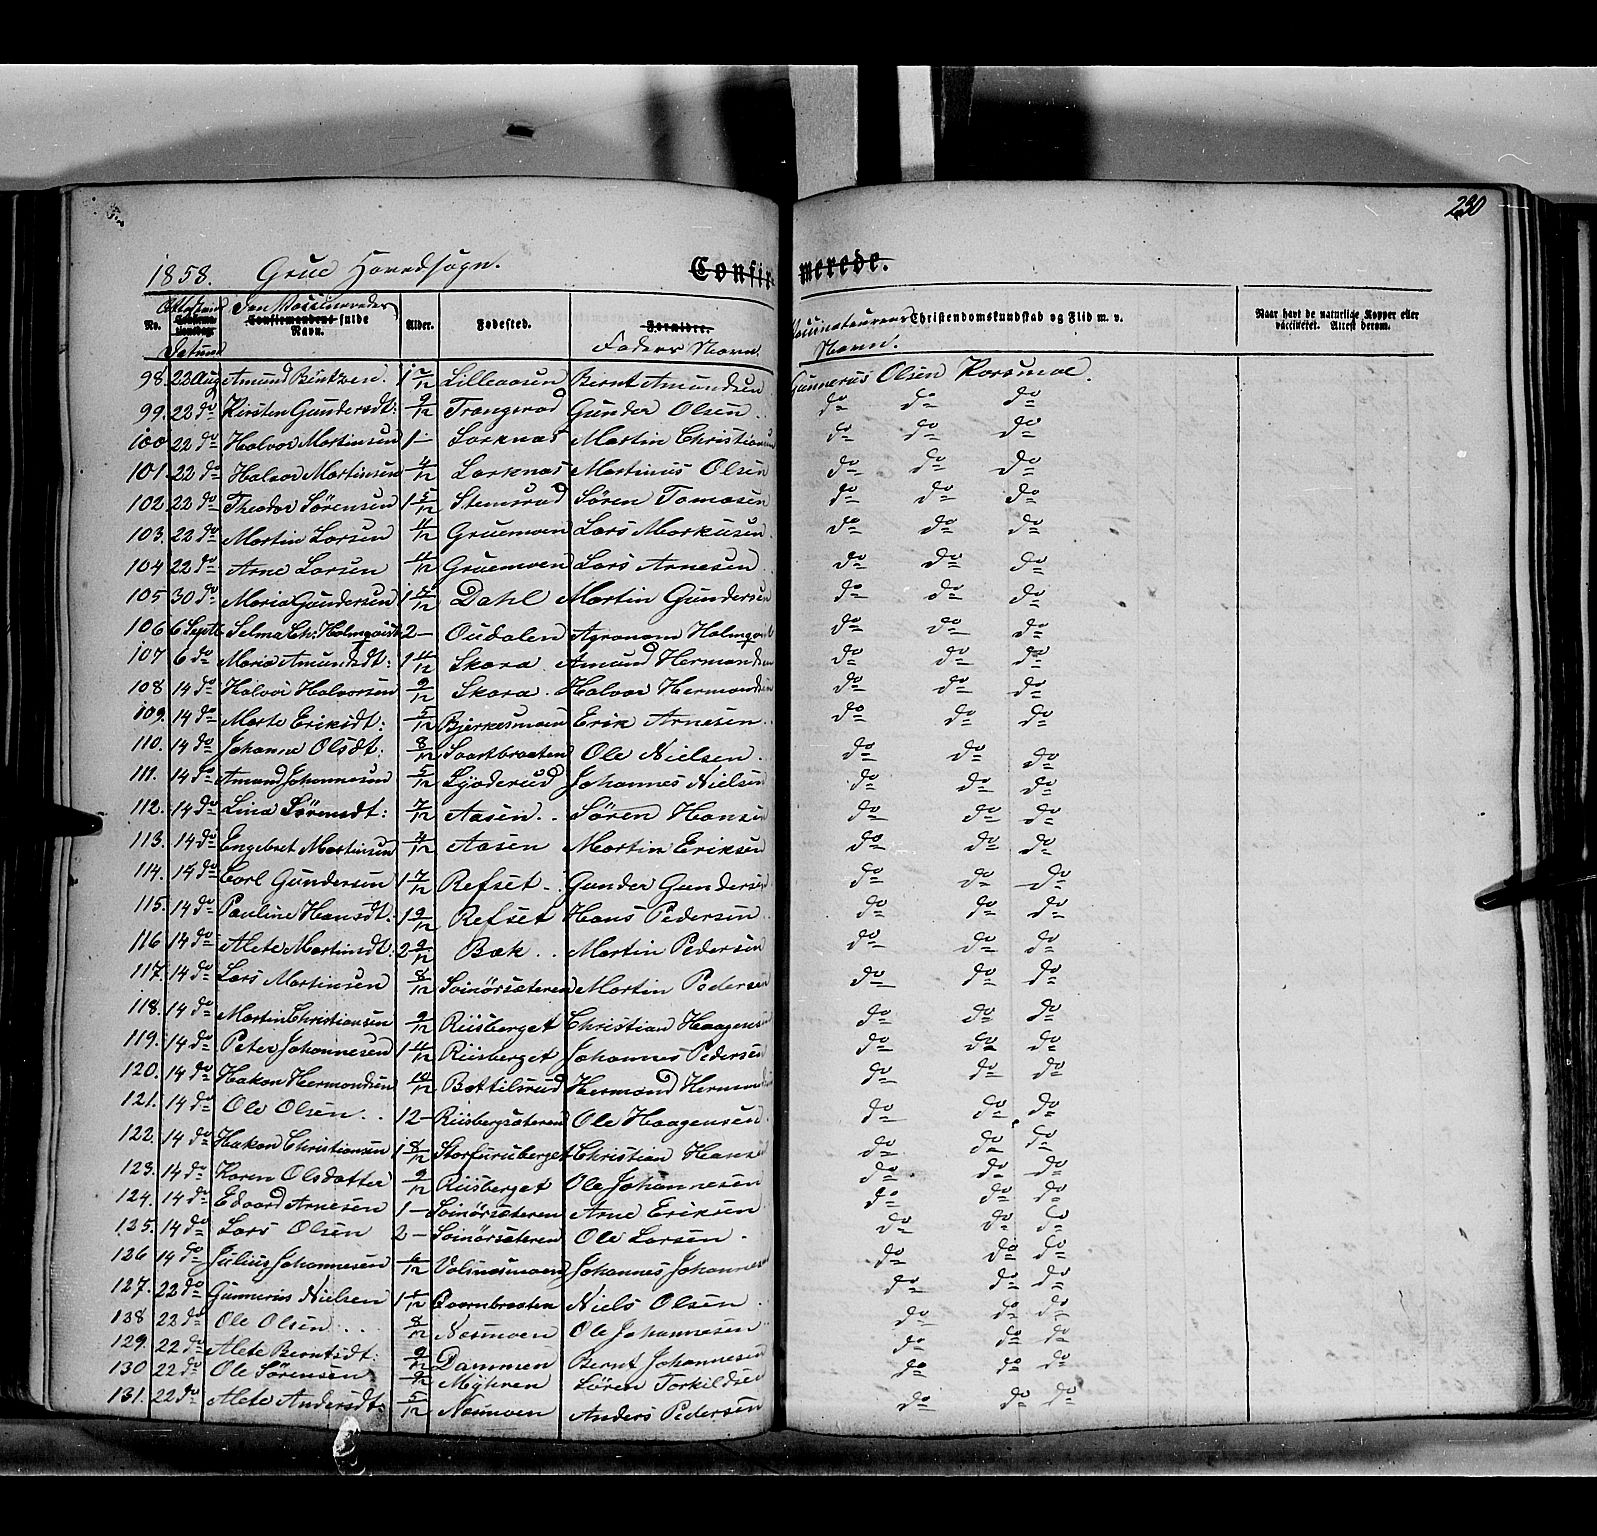 230
1858. Grue Hovedsogn. Confirmerede.
No. Attestens Datum Den Vaccineredes fulde Navn. Alder. Fødested. Forældre. Faders Navn. Vaccinateurens Navn. Christendomskundskab og Flid m. v. Naar havt de naturlige Kopper eller vaccineret. Attest derom.
98. 22 Aug Amund Berntsen. 1 2/12 Lilleaasen Bernt Amundsen Gunnerus Olsen Korsmoe.
99. 22 do Kirsten Gundersdt: 9/12 Trangsrud Gunder Olsen do do do
100 22 do Halvor Martinsen 1– Larknas Martin Christiansen do do do
101. 22 do Halvor Martinsen 4/12 Larknas Martinus Olsen do do do
102 22 do Theodor Sörensen 1 5/12 Stemsrud Sören Tomasen do do do
103. 22 do Martin Larsen 4/12 Gruemoen Lars Markusen do do do
104 22 do Arne Larsen 4/12 Gruemoen Lars Arnesen do do do
105 30 do Maria Gundersen 1 5/12 Dahl Martin Gundersen do do do
106 6 Septe Selma Ch: Holmqvist 2– Oudalen Agronom Holmqvist do do do
107 6 do Maria Amundsdt: 1 4/12 Skara. Amund Hermandsen do do do
108 14 do Halvor Halvorsen 9/12 Skara. Halvor Hermandsen do do do
109. 14 do Marte Eriksdt: 5/12 Bjerkesmoen Erik Arnesen. do do do
110. 14 do Johanne Olsdt: 8/12 Svartbraaten Ole Nielsen. do do do
111. 14 do Amund Johannesen 5/12 Lyaderud Johannes Nielsen do do do
112. 14 do Lina Sörensdt: 7/12 Aasen.. Sören Hansen do do do
113. 14 do Engebret Martinsen 4/12 Aasen Martin Eriksen do do do
114. 14 do Carl Gundersen 1 7/12 Refset– Gunder Gundersen do do do
115. 14 do Pauline Hansdt: 1 9/12 Refset Hans Pedersen do do do
116 14 do Alete Martinsdt: 2 9/12 Bæk.. Martin Pedersen do do do
117. 14 do Lars Martinsen 8/12 Svinörsæteren Martin Pedersen do do do
118. 14 do Martin Christiansen 9/12 Riisberget Christian Haagensen do do do
119. 14 do Peter Johannesen 1 4/12 Riisberget Johannes Pedersen do do do
120. 14 do Hakon Hermandsen 10/12 Bottilsrud Hermand Hermandsen do do do
121. 14 do Ole Olsen.. 12– Riisbergsæteren Ole Haagensen do do do
122. 14 do Hakon Christiansen 1 8/12 Storfuruberget Christian Hansen do do do
123. 14 do Karen Olsdatter 9/12 Riisberget Ole Johannesen do do do
124. 14 do Edvard Arnesen 1– Svinörsæteren Arne Eriksen do do do
125. 14 do Lars Olsen 2– Svinörsæteren Ole Larsen. do do do
126 14 do Julius Johannesen 6/12 Volsnæsmoen Johannes Johannesen do do do
127. 22 do Gunnerius Nielsen 1 6/12 Qvarnbraaten Niels Olsen do do do
138 22 do Ole Olsen.. 8/12 Næsmoen Ole Johannesen do do do
129. 22 do Alete Berntsdt: 9/12 Dammen Bernt Johannesen do do do
130 22 do Ole Sörensen 9/12 Myhren Sören Torkildsen do do do
131. 22 do Alete Andersdt: 5/12 Næsmoen Anders Pedersen do do do